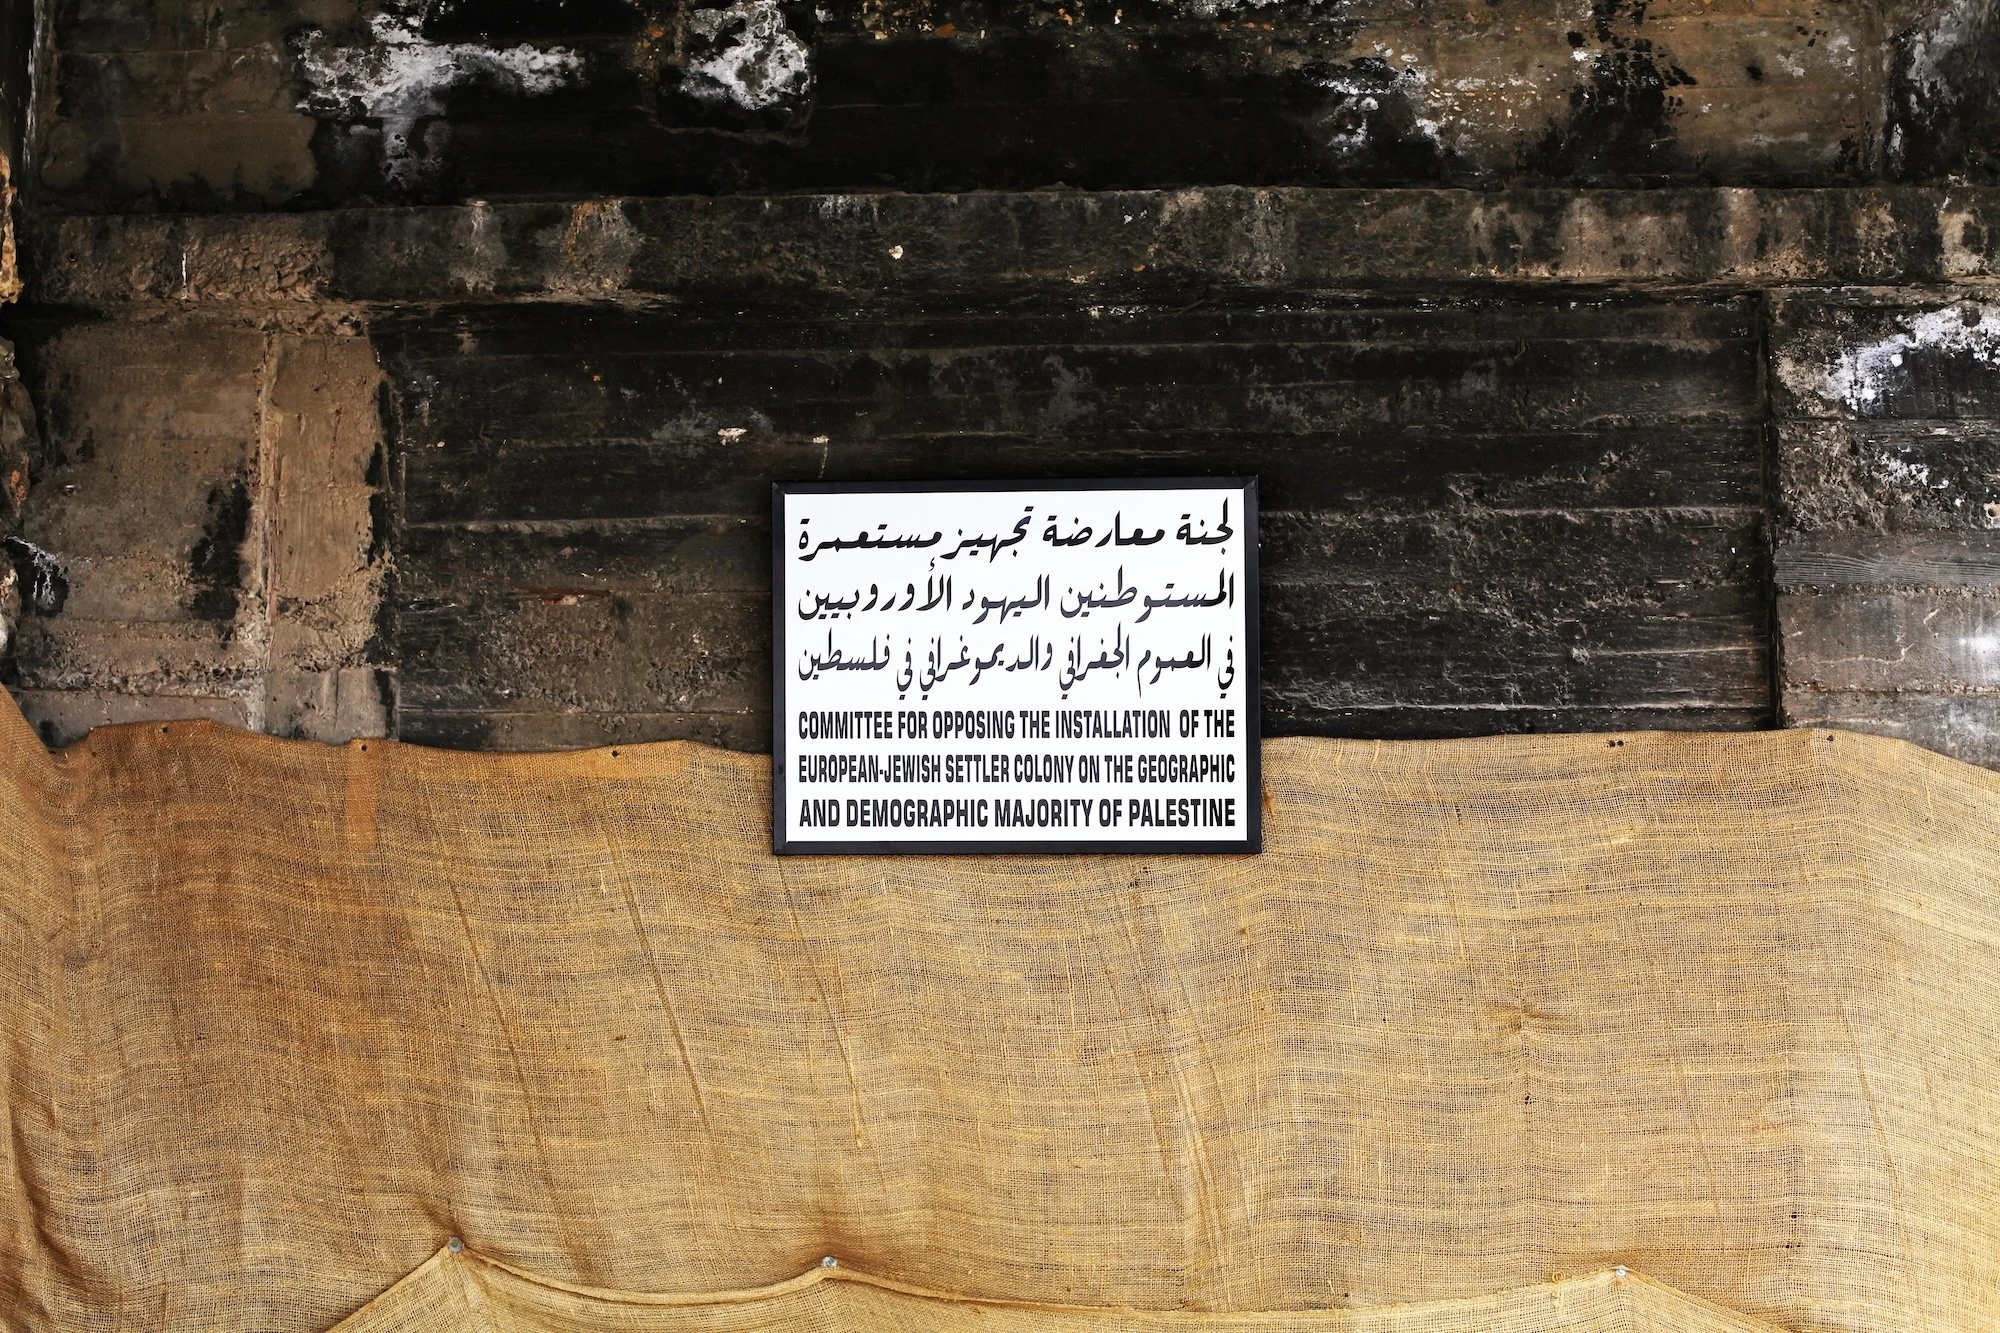 لجنة معارضة تجهيز مستعمرة
المستوطنين اليهود الأوروبيين
في العموم الجغرافي والديموغرافي في فلسطين
COMMITTEE FOR OPPOSING THE INSTALLATION OF THE
EUROPEAN-JEWISH SETTLER COLONY ON THE GEOGRAPHIC
AND DEMOGRAPHIC MAJORITY OF PALESTINE